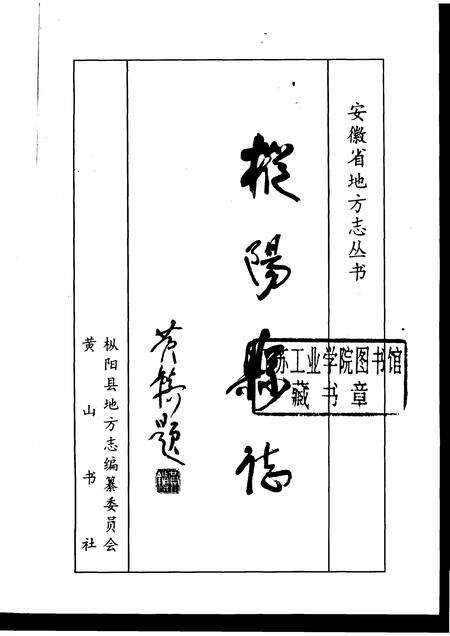 安徽省地方志丛书
樅陽縣誌
苏工业学院图书馆
藏书章
黄鎮題
枞阳县地方志编纂委员会
黄山书社